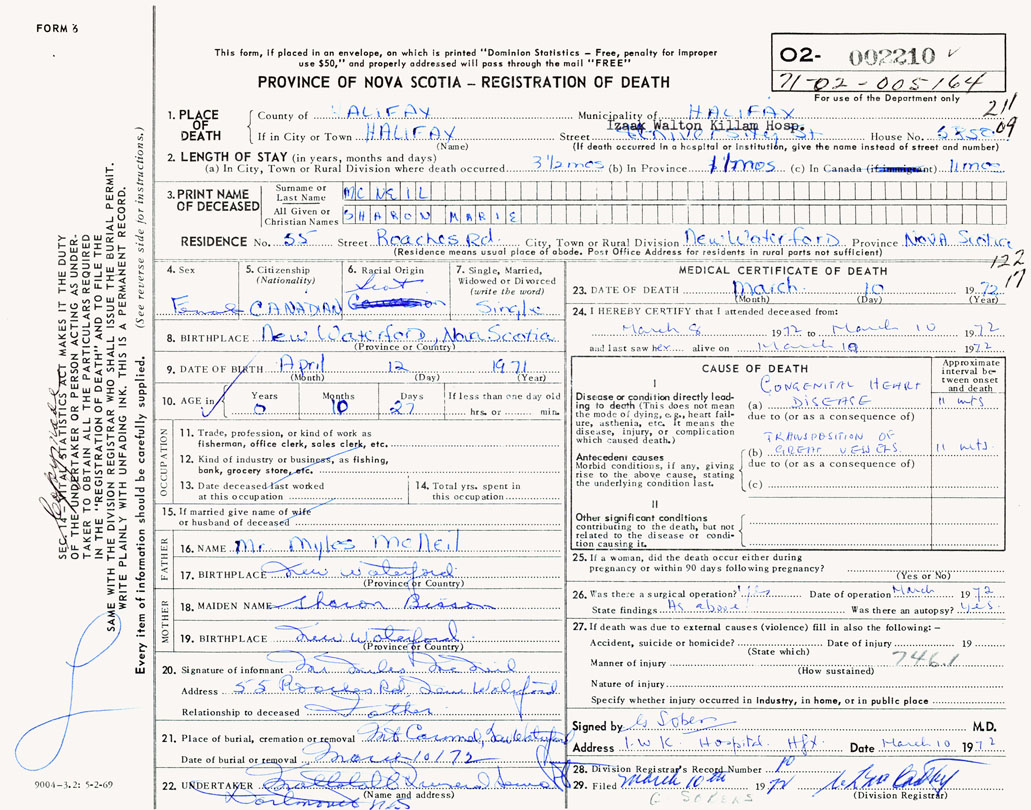 FORM 3
This form, if placed in an envelope, on which is printed "Dominion Statistics – Free, penalty for improper
use $50," and properly addressed will pass through the mail "FREE"
PROVINCE OF NOVA SCOTIA – REGISTRATION OF DEATH
02- 002210
71-02-005164
For use of the Department only
211
09
1. PLACE OF DEATH
County of HALIFAX Municipality of HALIFAX
Izaak Walton Killam Hosp.
If in City or Town HALIFAX Street University St House No. 5850
(Name) (If death occurred in a hospital or institution, give the name instead of street and number)
2. LENGTH OF STAY (in years, months and days)
(a) In City, Town or Rural Division where death occurred 3 1/2 mos (b) In Province 11 mos (c) In Canada (if immigrant) 11 mos
3. PRINT NAME OF DECEASED
Surname or Last Name MCNEIL
All Given or Christian Names SHARON MARIE
RESIDENCE No. 55 Street Roaches Rd. City, Town or Rural Division New Waterford Province Nova Scotia
(Residence means usual place of abode. Post Office Address for residents in rural parts not sufficient)
122
17
4. Sex Female
5. Citizenship (Nationality) CANADIAN
6. Racial Origin Scot
7. Single, Married, Widowed or Divorced (write the word) Single
8. BIRTHPLACE New Waterford, Nova Scotia
(Province or Country)
9. DATE OF BIRTH April 12 1971
(Month) (Day) (Year)
10. AGE in Years 0 Months 10 Days 27 If less than one day old
hrs. or min.
OCCUPATION
11. Trade, profession, or kind of work as
fishermen, office clerk, sales clerk, etc.
12. Kind of industry or business, as fishing,
bank, grocery store, etc.
13. Date deceased last worked
at this occupation
14. Total yrs. spent in
this occupation
15. If married give name of wife
or husband of deceased
FATHER
16. NAME Mr. Myles McNeil
17. BIRTHPLACE New Waterford
(Province or Country)
MOTHER
18. MAIDEN NAME Sharon Bisson
19. BIRTHPLACE New Waterford
(Province or Country)
20. Signature of informant Mr Myles McNeil
Address 55 Roaches Rd New Waterford
Relationship to deceased Father
21. Place of burial, cremation or removal Mt Carmel, New Waterford
Date of burial or removal March 10/72
22. UNDERTAKER Funeral Home
Dartmouth N.S.
(Name and address)
MEDICAL CERTIFICATE OF DEATH
23. DATE OF DEATH March 10 1972
(Month) (Day) (Year)
24. I HEREBY CERTIFY that I attended deceased from:
March 8 1972 to March 10 1972
and last saw her alive on March 10 1972
CAUSE OF DEATH
Approximate interval between onset and death
I
Disease or condition directly leading to death (This does not mean the mode of dying, e.g., heart failure, asthenia, etc. It means the disease, injury, or complication which caused death.)
(a) CONGENITAL HEART DISEASE 11 mts
due to (or as a consequence of)
Antecedent causes
Morbid conditions, if any, giving rise to the above cause, stating the underlying condition last.
(b) TRANSPOSITION OF GREAT VESSELS 11 mts.
due to (or as a consequence of)
(c)
II
Other significant conditions
contributing to the death, but not related to the disease or condition causing it.
25. If a woman, did the death occur either during
pregnancy or within 90 days following pregnancy?
(Yes or No)
26. Was there a surgical operation? Yes Date of operation March 1972
State findings As above Was there an autopsy? yes.
27. If death was due to external causes (violence) fill in also the following:–
Accident, suicide or homicide? Date of injury 19
(State which)
746.1
Manner of injury
(How sustained)
Nature of injury
Specify whether injury occurred in industry, in home, or in public place
Signed by G Sobers M.D.
Address I.W.K. Hospital Hfx Date March 10 1972
28. Division Registrar's Record Number 10
29. Filed March 10th 1972
G SOBERS
(Division Registrar)
SEC. VITAL STATISTICS ACT MAKES IT THE DUTY
OF THE UNDERTAKER OR PERSON ACTING AS UNDER-
TAKER TO OBTAIN ALL THE PARTICULARS REQUIRED
IN THE "REGISTRATION OF DEATH" AND TO FILE THE
SAME WITH THE DIVISION REGISTRAR WHO SHALL ISSUE THE BURIAL PERMIT.
WRITE PLAINLY WITH UNFADING INK. THIS IS A PERMANENT RECORD.
Every item of information should be carefully supplied. (See reverse side for instructions.)
9004–3.2: 5-2-69